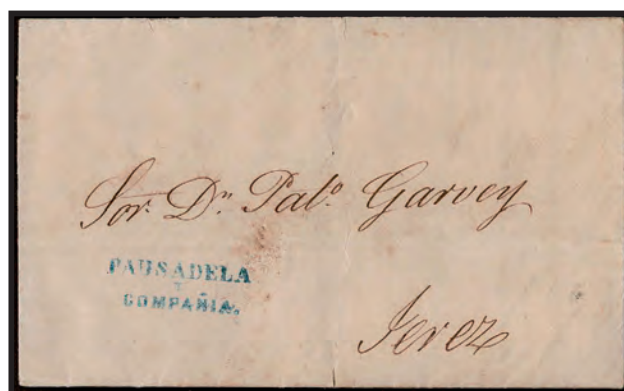 Sor. Dn. Pablo. Garvey
PAUSADELA
Y
COMPAÑIA.
Jerez